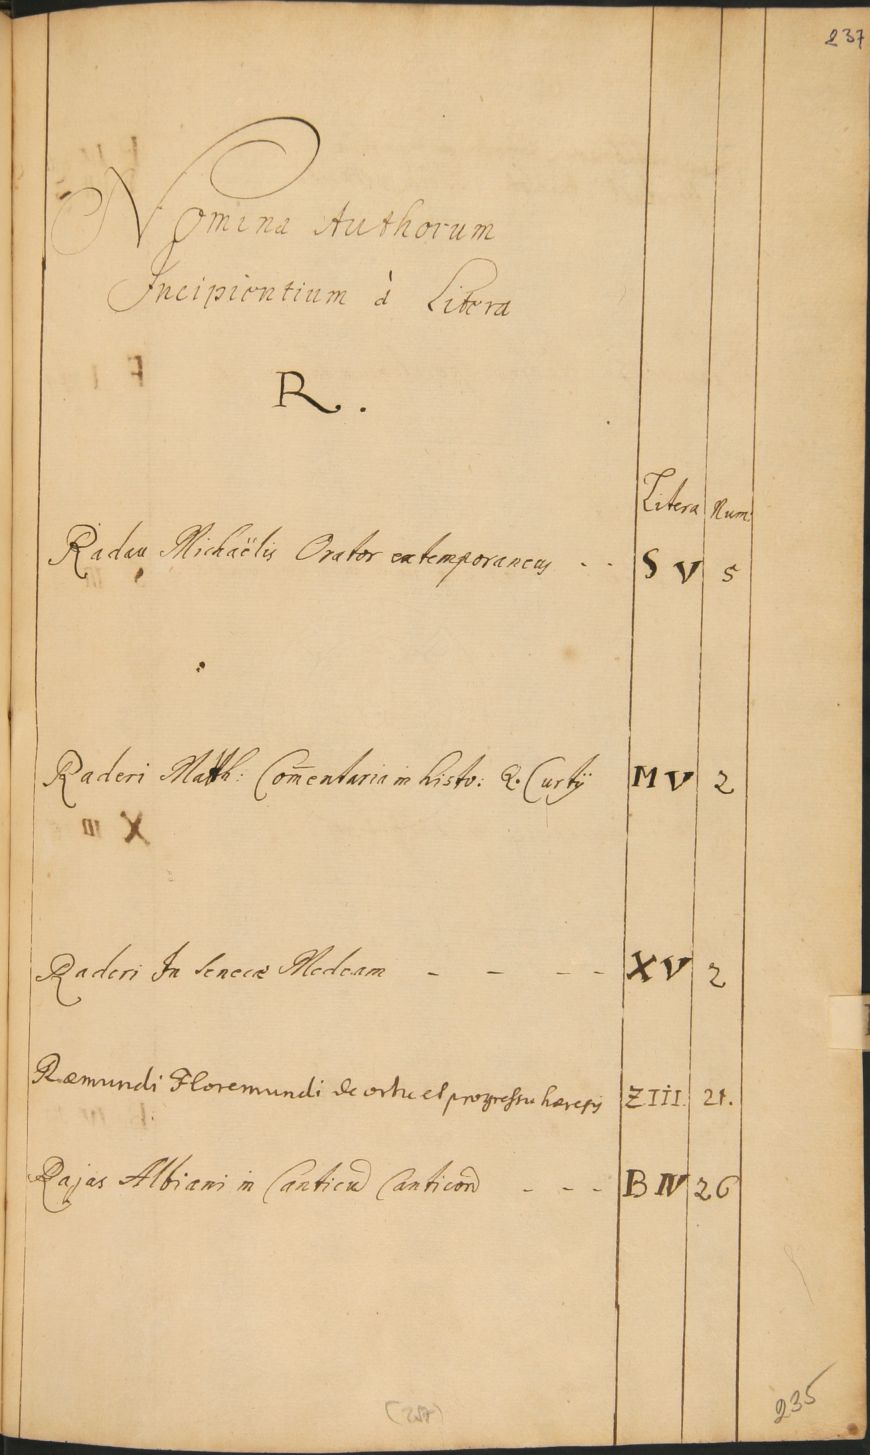 237
Nomina Authorum
Incipientium à Litera
R.
Litera Num
Radau Michaëlis Orator extemporaneus - - S V 5
Raderi Matth: Com̄entaria in histo: Q. Curtij M V 2
Raderi In Senecæ Medeam - - - - X V 2
Ræmundi Floremundi de ortu et progressu hæresis Z III. 21.
Rajas Albiani in Canticū Canticorū - - - B IV 26
(237)
235